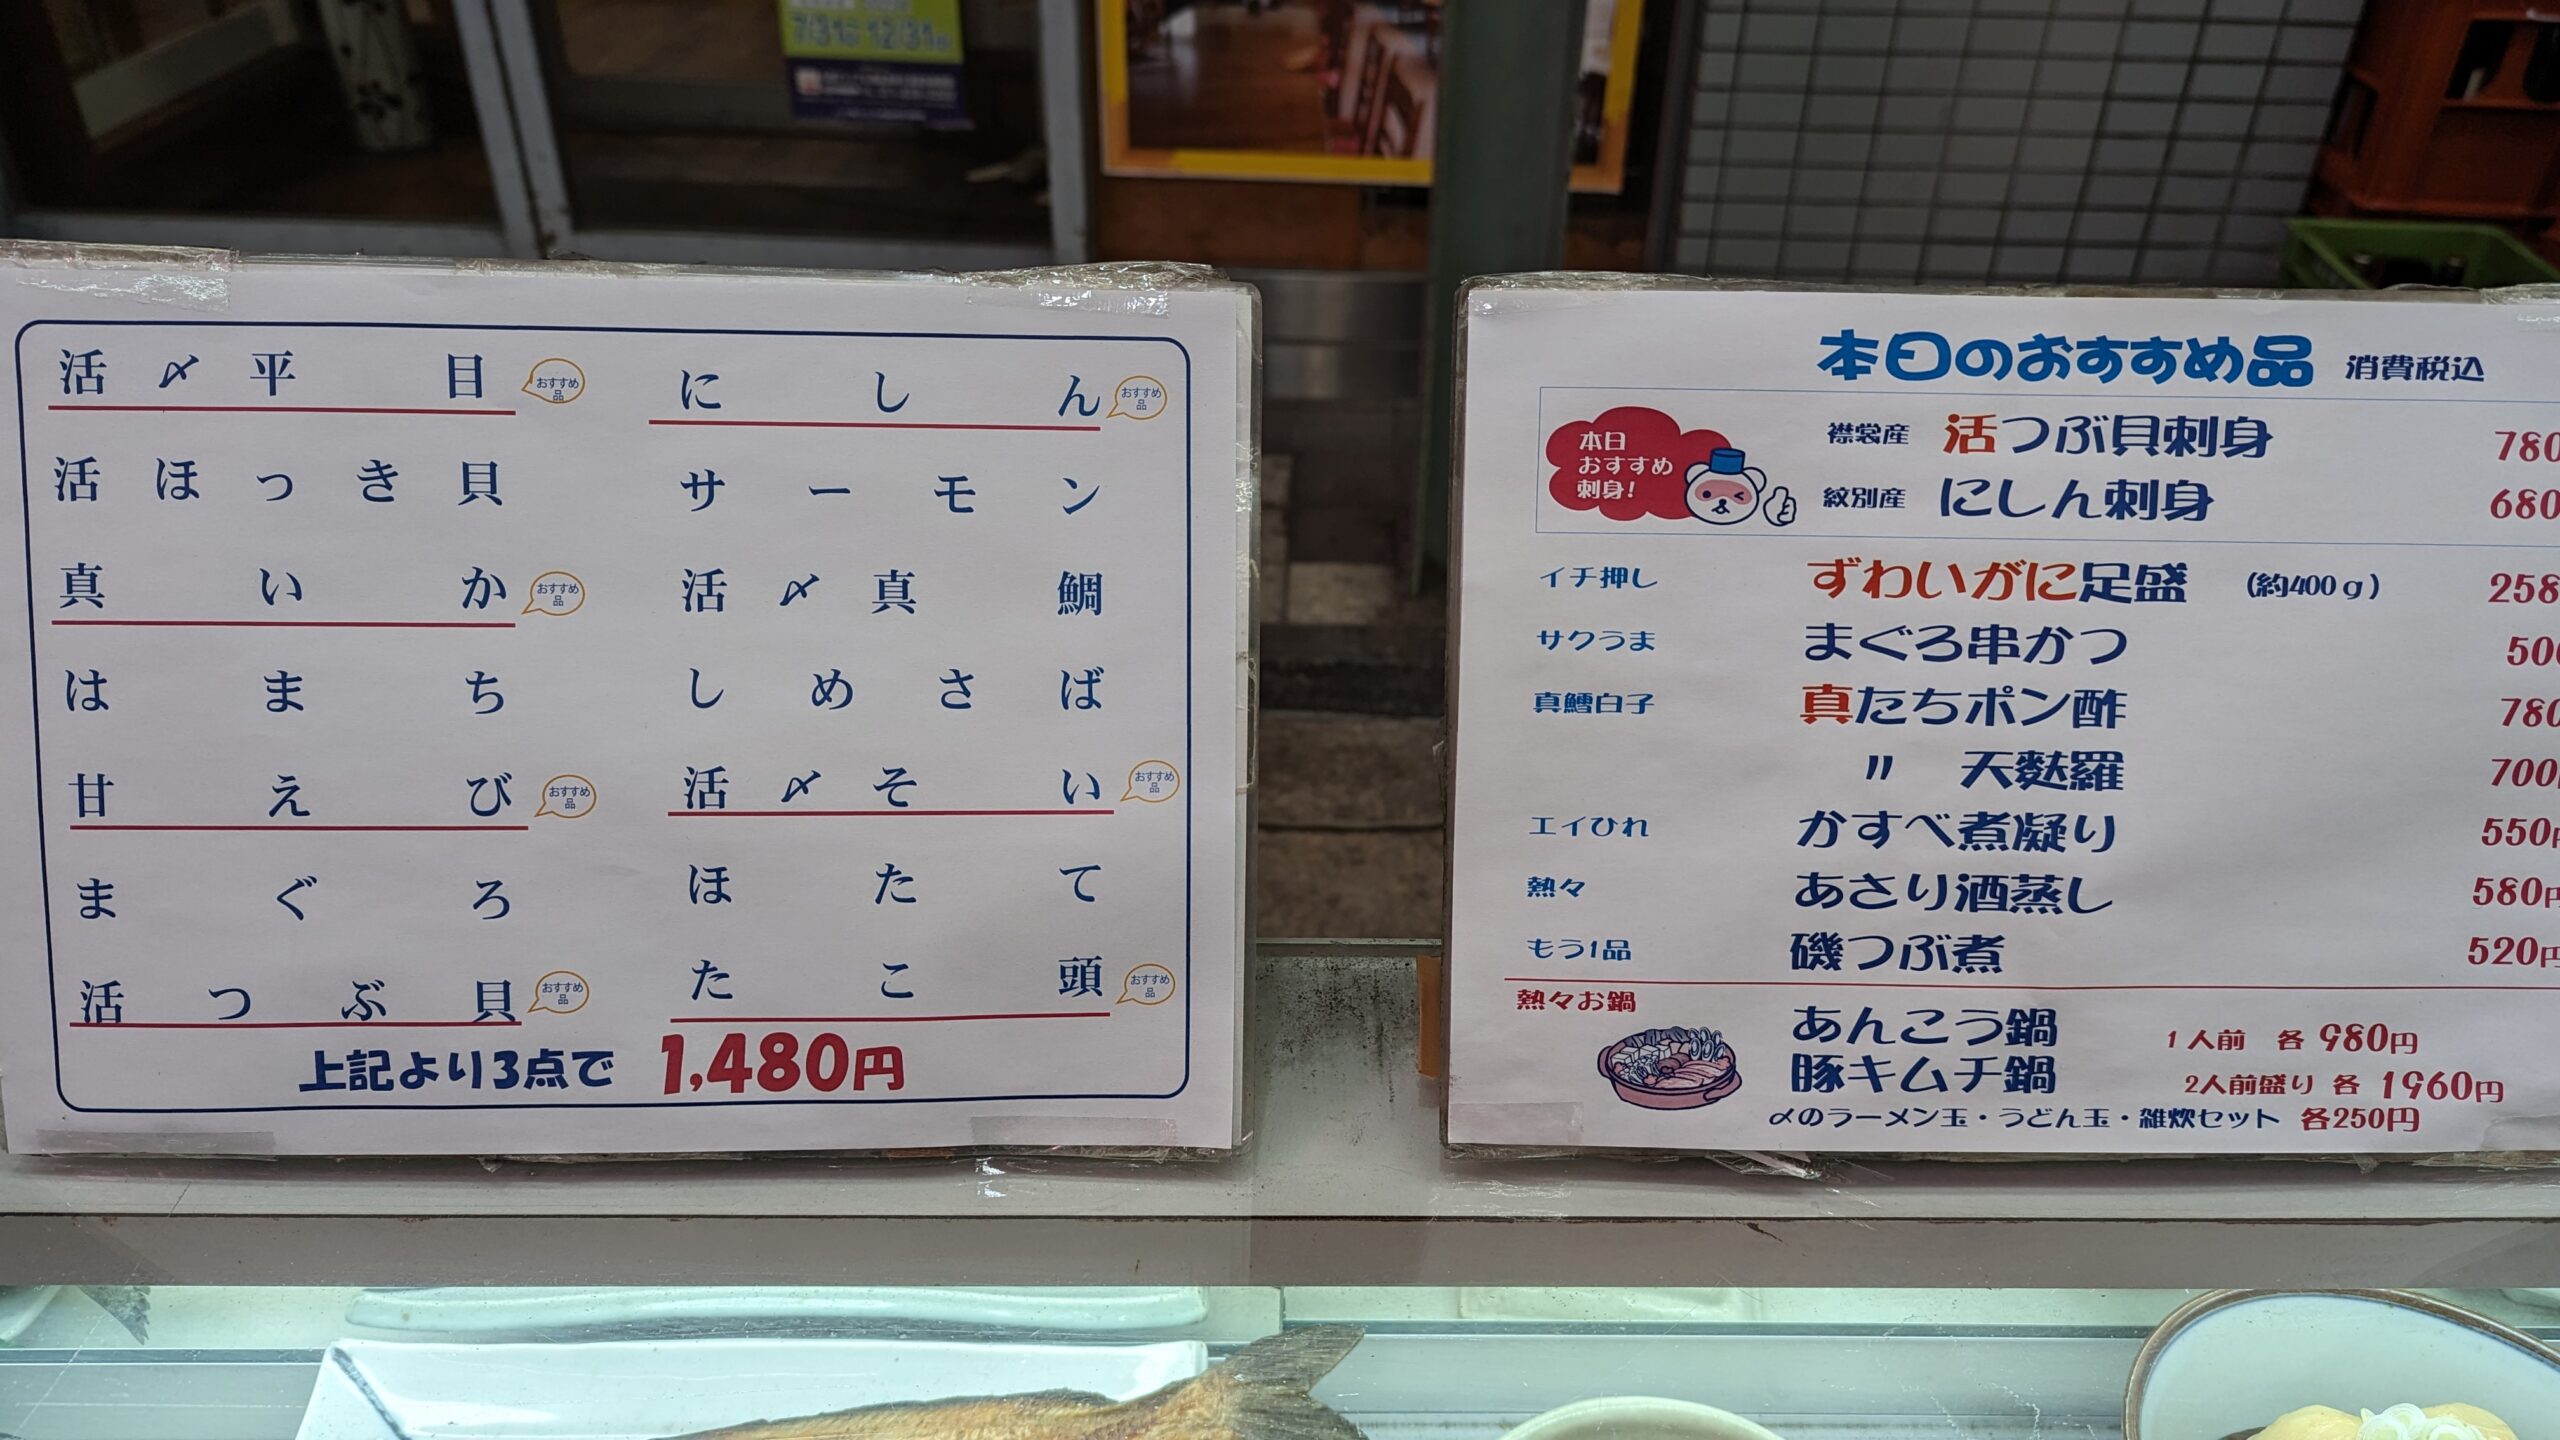 活〆平目 おすすめ品
活ほっき貝
真いか おすすめ品
はまち
甘えび おすすめ品
まぐろ
活つぶ貝 おすすめ品
にしん おすすめ品
サーモン
活〆真鯛
しめさば
活〆そい おすすめ品
ほたて
たこ頭 おすすめ品
上記より3点で 1,480円
本日のおすすめ品 消費税込
本日
おすすめ
刺身!
襟裳産 活つぶ貝刺身 780
紋別産 にしん刺身 680
イチ押し ずわいがに足盛 (約400g) 258
サクうま まぐろ串かつ 500
真鱈白子 真たちポン酢 780
〃 天麩羅 700円
エイひれ かすべ煮凝り 550円
熱々 あさり酒蒸し 580円
もう1品 磯つぶ煮 520円
熱々お鍋
あんこう鍋 1人前 各 980円
豚キムチ鍋 2人前盛り 各 1960円
〆のラーメン玉・うどん玉・雑炊セット 各250円